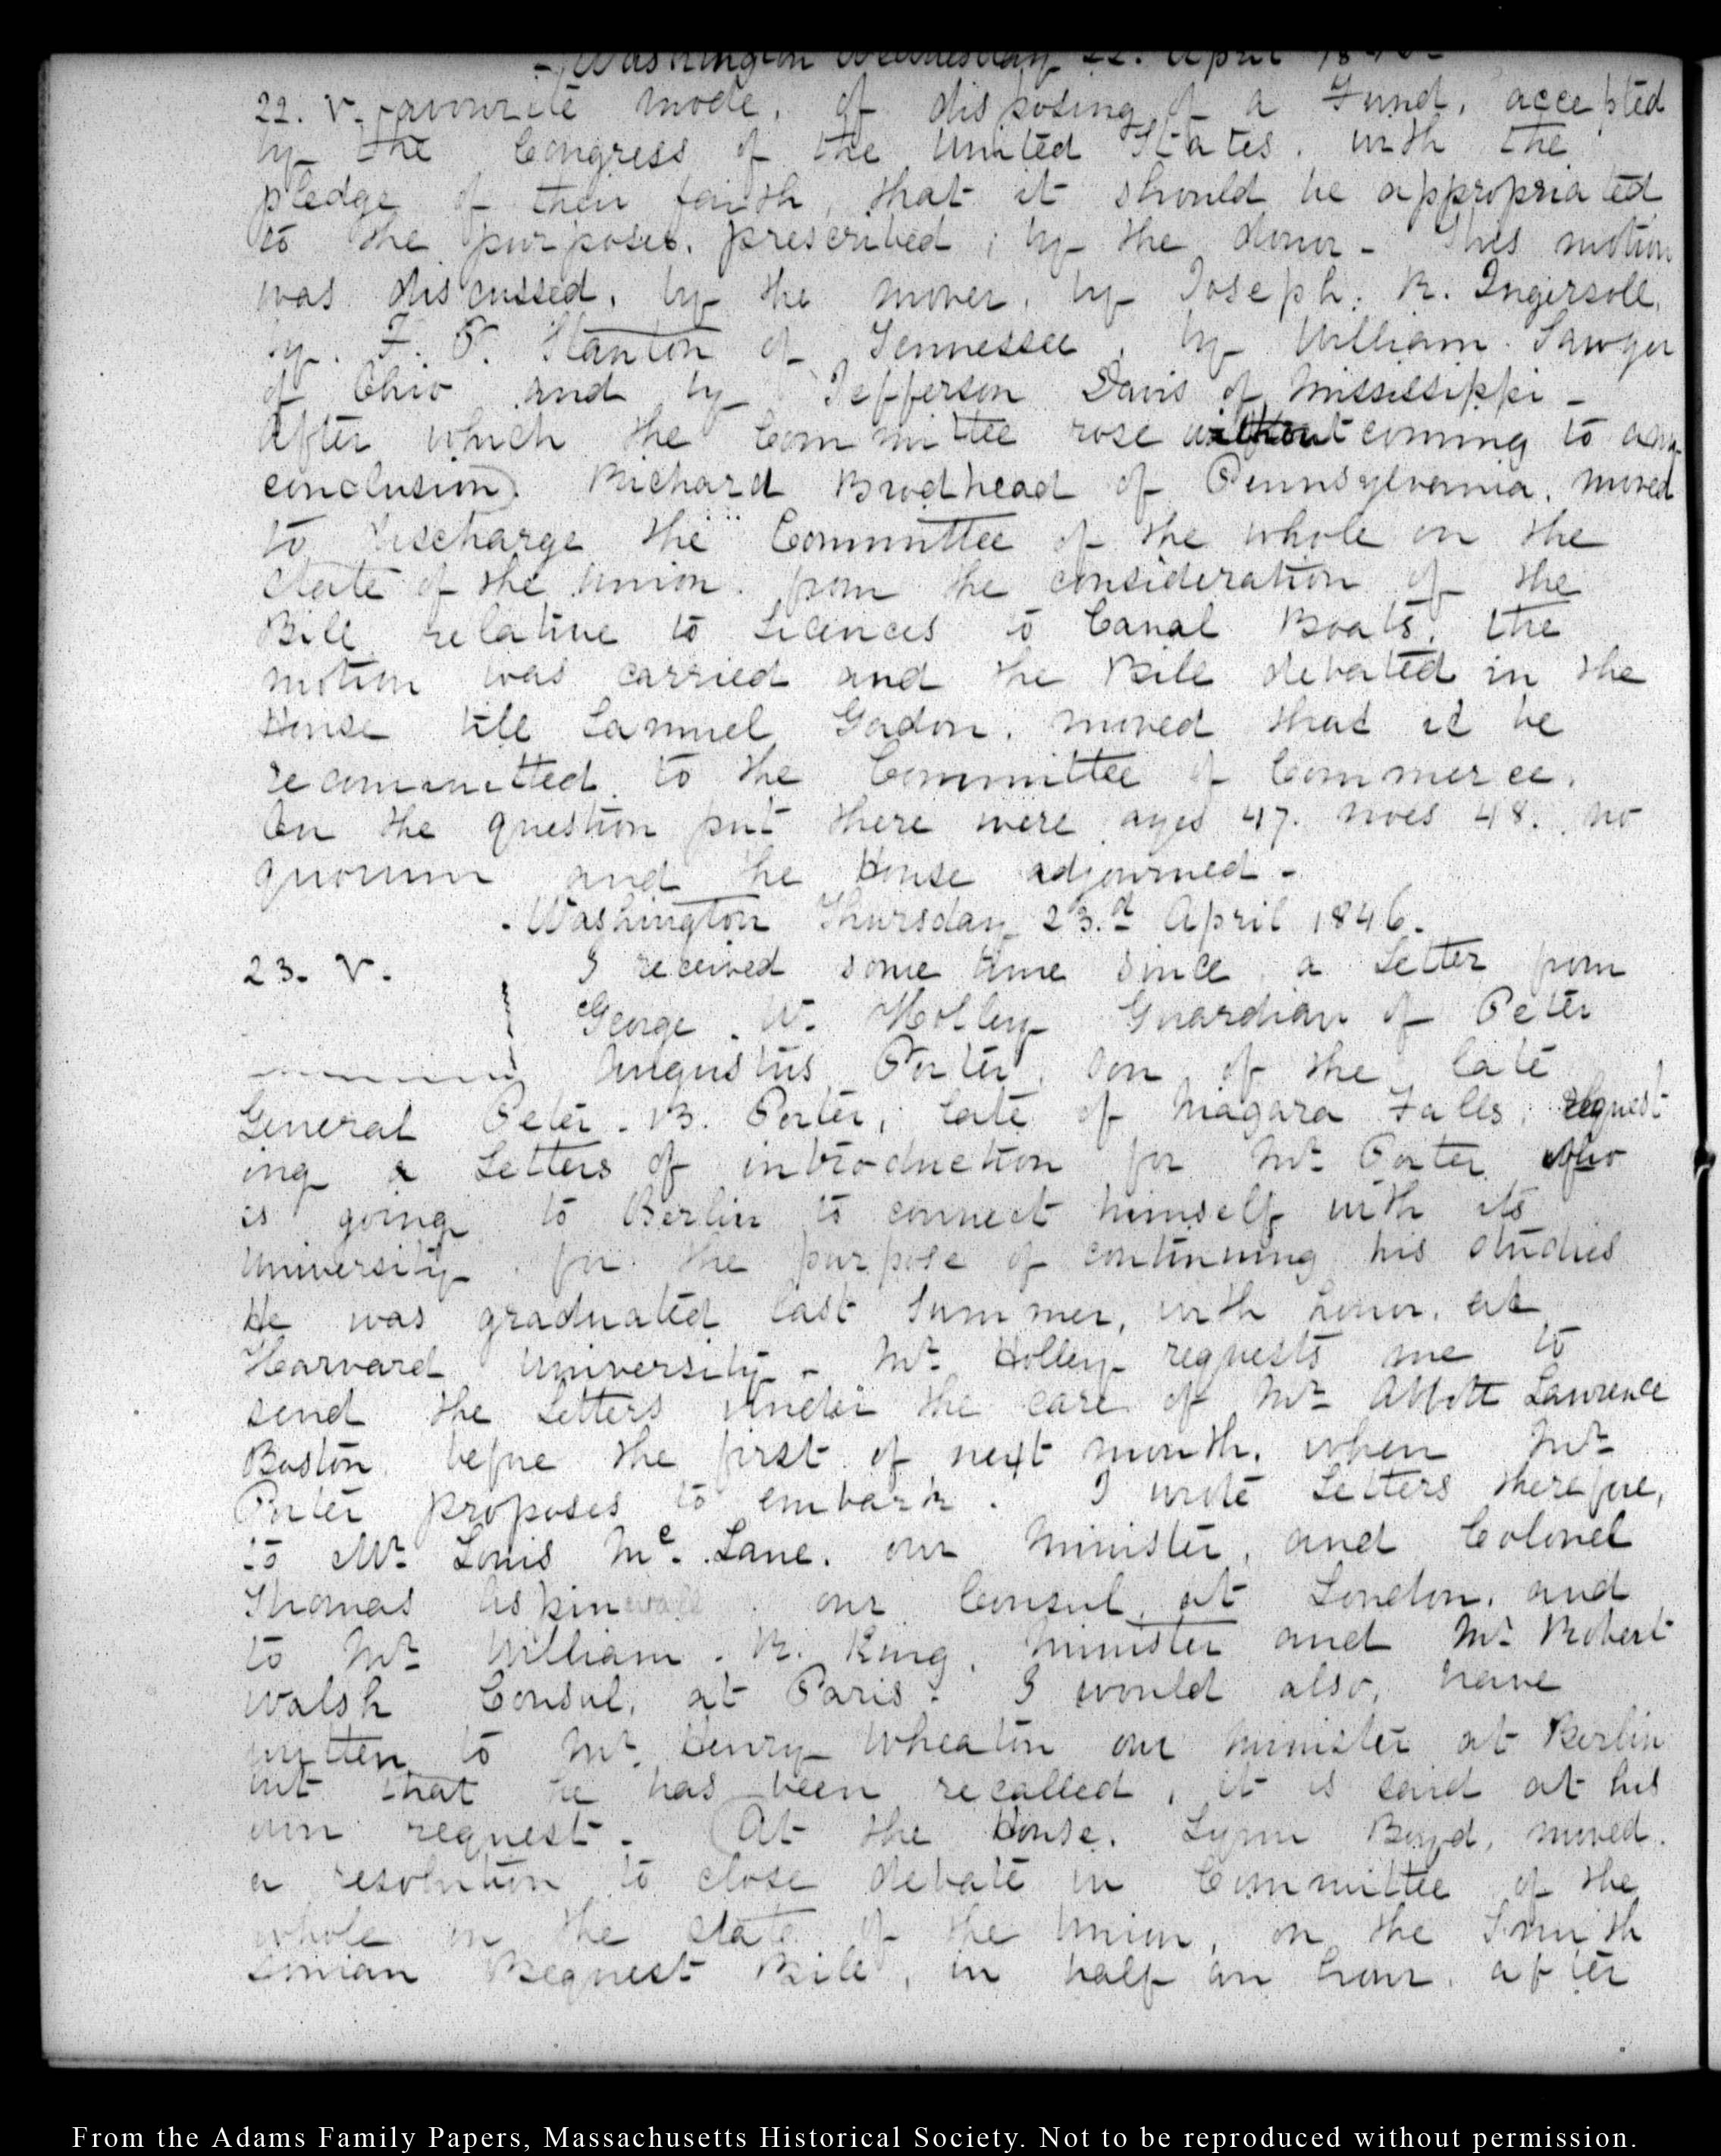 - Washington Wednesday 22. April 1846 -
22. V. favourite mode, of disposing of a Fund, accepted
by the Congress of the United States, with the
pledge of their faith, that it should be appropriated
to the purposes, prescribed, by the donor - This motion
was discussed, by the mover, by Joseph. R. Ingersoll,
by. F. P. Stanton of Tennessee, by William Sawyer
of Ohio and by Jefferson Davis of Mississippi -
After which the Committee rose without coming to any
conclusion). Richard Brodhead of Pennsylvania, moved
to discharge the Committee of the whole on the
state of the Union. from the consideration of the
Bill relative to Licences to Canal Boats, the
motion was carried and the Bill debated in the
House till Samuel Gordon, moved that it be
recommitted to the Committee of Commerce.
On the question put there were ayes 47. noes 48. no
quorum and the House adjourned -
- Washington Thursday 23.d April 1846.
23. V. I received some time since a Letter from
George. W. Holley Guardian of Peter
Augustus Porter, son of the late
General Peter. B. Porter, late of Niagara Falls, request
ing a Letters of introduction for Mr. Porter who
is going to Berlin to connect himself with its
University, for the purpose of continuing his studies
He was graduated last Summer, with honor, at
Harvard University - Mr. Holley requests me to
send the Letters under the care of Mr. Abbott Lawrence
Boston before the first of next month, when Mr.
Porter proposes to embark. I wrote Letters therefore,
to Mr. Louis Mc. Lane, our Minister, and Colonel
Thomas Aspinwall our Consul, at London, and
to Mr. William. R. King, Minister and Mr. Robert
Walsh Consul, at Paris. I would also, have
written to Mr. Henry Wheaton our Minister at Berlin
but that he has been recalled, it is said at his
own request. (At the House, Lynn Boyd, moved.
a resolution to close debate in Committee of the
whole on the state of the Union, on the Smith
sonian Bequest Bill, in half an hour, after
From the Adams Family Papers, Massachusetts Historical Society. Not to be reproduced without permission.